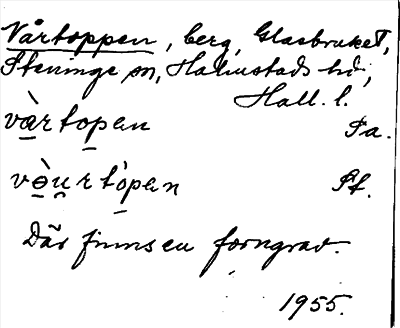 Vårtoppen, berg, Glasbruket,
Steninge sn, Halmstads hd,
Hall. l.
vàrtopen Ia.
vèu̯rtòpen If.
Där finns en forngrav.
1955.